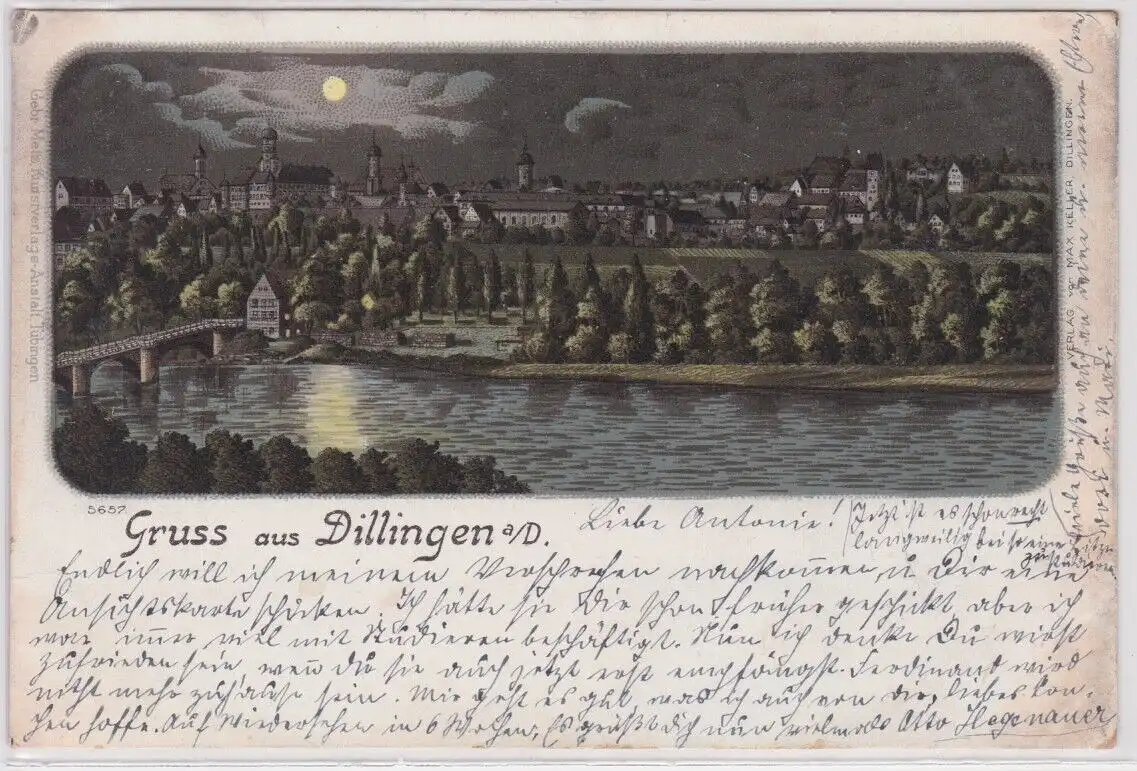 Gebr. Metz, Kunstverlags-Anstalt, Tübingen
VERLAG v. MAX KELLER, DILLINGEN.
5657
Gruss aus Dillingen a/D.
Liebe Antonie!
Jetzt ist es schon recht
langweilig bei so einer Hitze
zu studieren
Endlich will ich meinem Versprechen nachkommen, u. Dir eine
Ansichtskarte schicken. Ich hätte sie Dir schon früher geschickt, aber ich
war immer viel mit Studieren beschäftigt. Nun ich denke Du wirst
zufrieden sein, wenn du sie auch jetzt erst empfängst. Ferdinand wird
nicht mehr zuhause sein. Mir geht es gut, was ich auch von dir, liebes
hoffe. Auf Wiedersehen in 6 Wochen. Es grüßt Dich nun vielmals Otto Hegenauer
Viele Grüße auch an deine u. meine Eltern